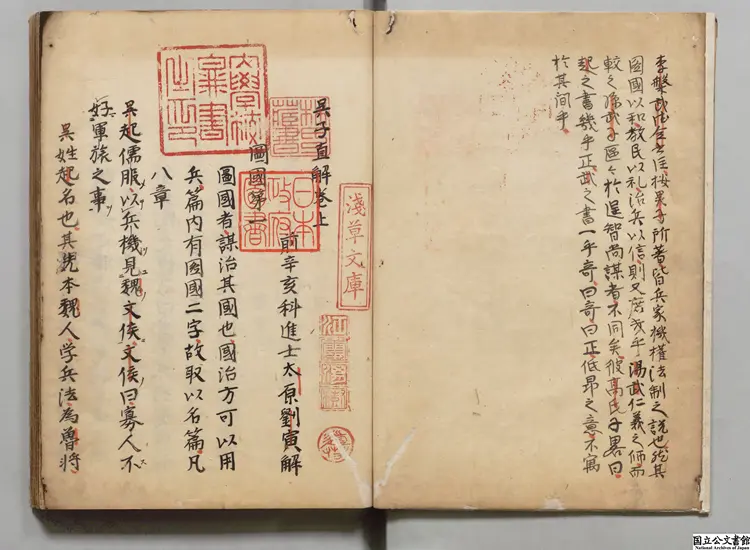 李擊武臣全注按吳子所著皆兵家機權法制之說也然其
圖國以和教民以礼治兵以信則又庶幾乎湯武仁義之師而
較之孫武子區々於逞智尚謀者不同矣彼高氏子畧曰
起之書幾乎正武之書一乎奇曰奇曰正低昂之意不寓
於其間乎
吳子直解卷上
前辛亥科進士太原劉寅解
圖國第一
圖國者謀治其國也國治方可以用
兵篇内有圖國二字故取以名篇凡
八章
吳起儒服以兵機見魏文侯文侯曰寡人不
好軍旅之事
吳姓起名也其先本魏人学兵法為魯將
大學校
圖書
之印
林氏
藏書
日本
政府
圖書
淺草文庫
江雲渭樹
国立公文書館
National Archives of Japan